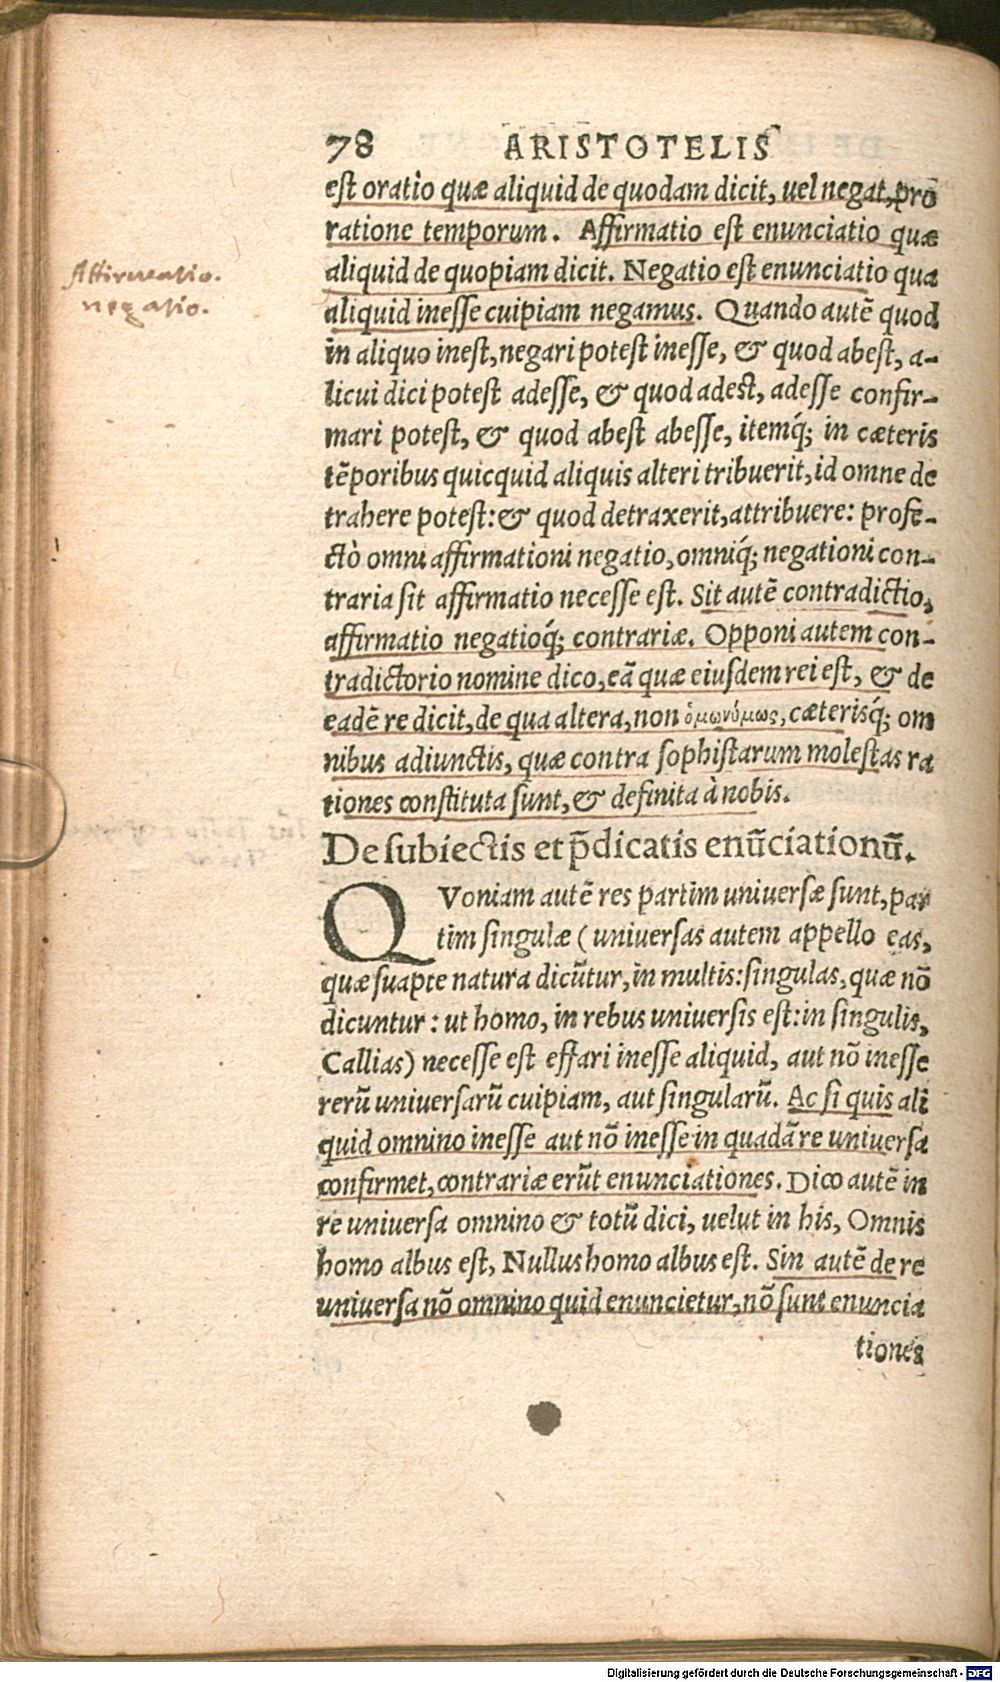 78 ARISTOTELIS
est oratio quæ aliquid de quodam dicit, uel negat, pro
ratione temporum. Affirmatio est enunciatio quæ
aliquid de quopiam dicit. Negatio est enunciatio qua
aliquid inesse cuipiam negamus. Quando autẽ quod
in aliquo inest, negari potest inesse, & quod abest, a-
licui dici potest adesse, & quod adest, adesse confir-
mari potest, & quod abest abesse, itemq́; in cæteris
tẽporibus quicquid aliquis alteri tribuerit, id omne de
trahere potest: & quod detraxerit, attribuere: profe-
ctò omni affirmationi negatio, omniq́; negationi con-
traria sit affirmatio necesse est. Sit autẽ contradictio,
affirmatio negatioq́; contrariæ. Opponi autem con-
tradictorio nomine dico, eã quæ eiusdem rei est, & de
eadẽ re dicit, de qua altera, non ὁμωνύμως, cæterisq́; om
nibus adiunctis, quæ contra sophistarum molestas ra
tiones constituta sunt, & definita à nobis.
De subiectis et p̃dicatis enũciationũ.
QVoniam autẽ res partim uniuersæ sunt, par
tim singulæ (uniuersas autem appello eas,
quæ suapte natura dicũtur, in multis: singulas, quæ nõ
dicuntur: ut homo, in rebus uniuersis est: in singulis,
Callias) necesse est effari inesse aliquid, aut nõ inesse
rerũ uniuersarũ cuipiam, aut singularũ. Ac si quis ali
quid omnino inesse aut nõ inesse in quadã re uniuersa
confirmet, contrariæ erũt enunciationes. Dico autẽ in
re uniuersa omnino & totũ dici, uelut in his, Omnis
homo albus est, Nullus homo albus est. Sin autẽ de re
uniuersa nõ omnino quid enuncietur, nõ sunt enuncia
tiones
Affirmatio.
negatio.
Digitalisierung gefördert durch die Deutsche Forschungsgemeinschaft - DFG